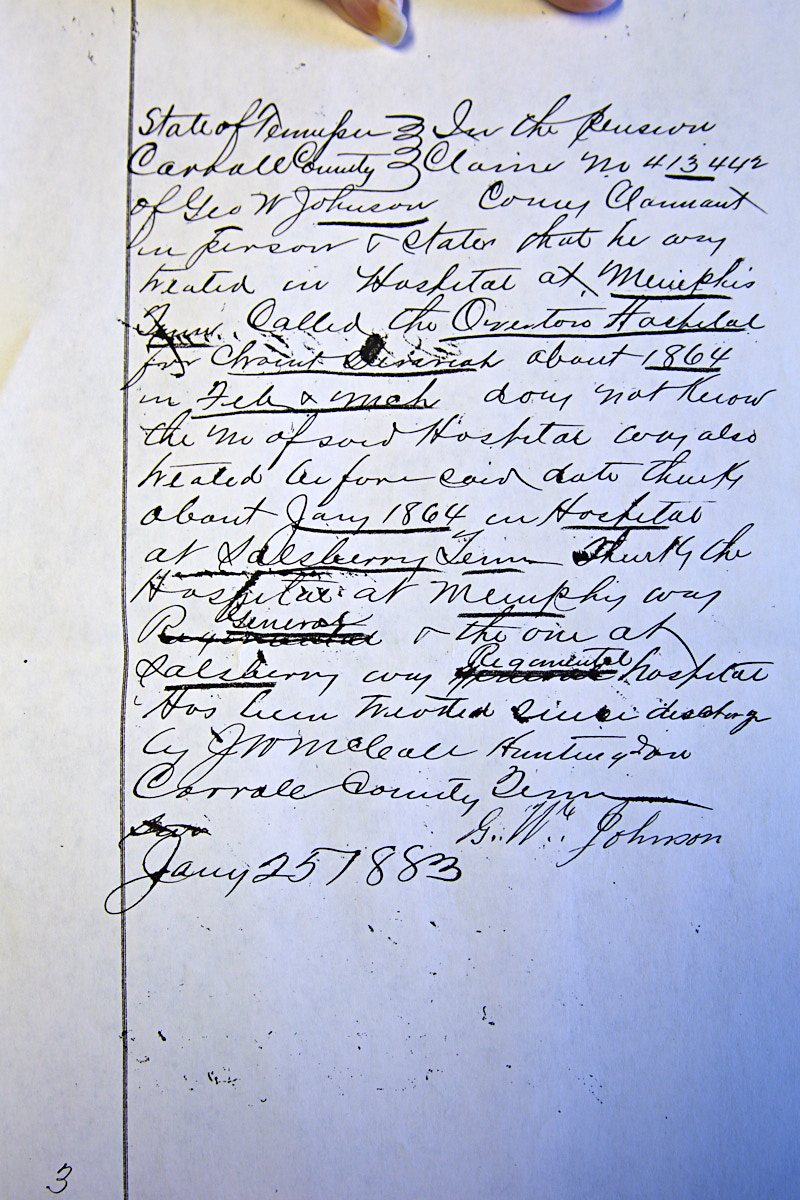 State of Tennessee } In the Pension
Carroll County } Claim No 413442
of Geo W Johnson Comes Claimant
in person & states that he was
treated in Hospital at Memphis
Tenn. Called the Overton Hospital
for Chronic about 1864
in Feb & Mch does not Know
the No of said Hospital was also
treated before said date thinks
about Jany 1864 in Hospital
at Salsberry Tenn Thinks the
Hospital at Memphis was
General
Regimental & the one at
Regimental
Salsberry was General hospital
Has been treated since discharge
by J W McCall Huntingdon
Carroll County Tenn
G. W. Johnson
Jany 25 1883
3